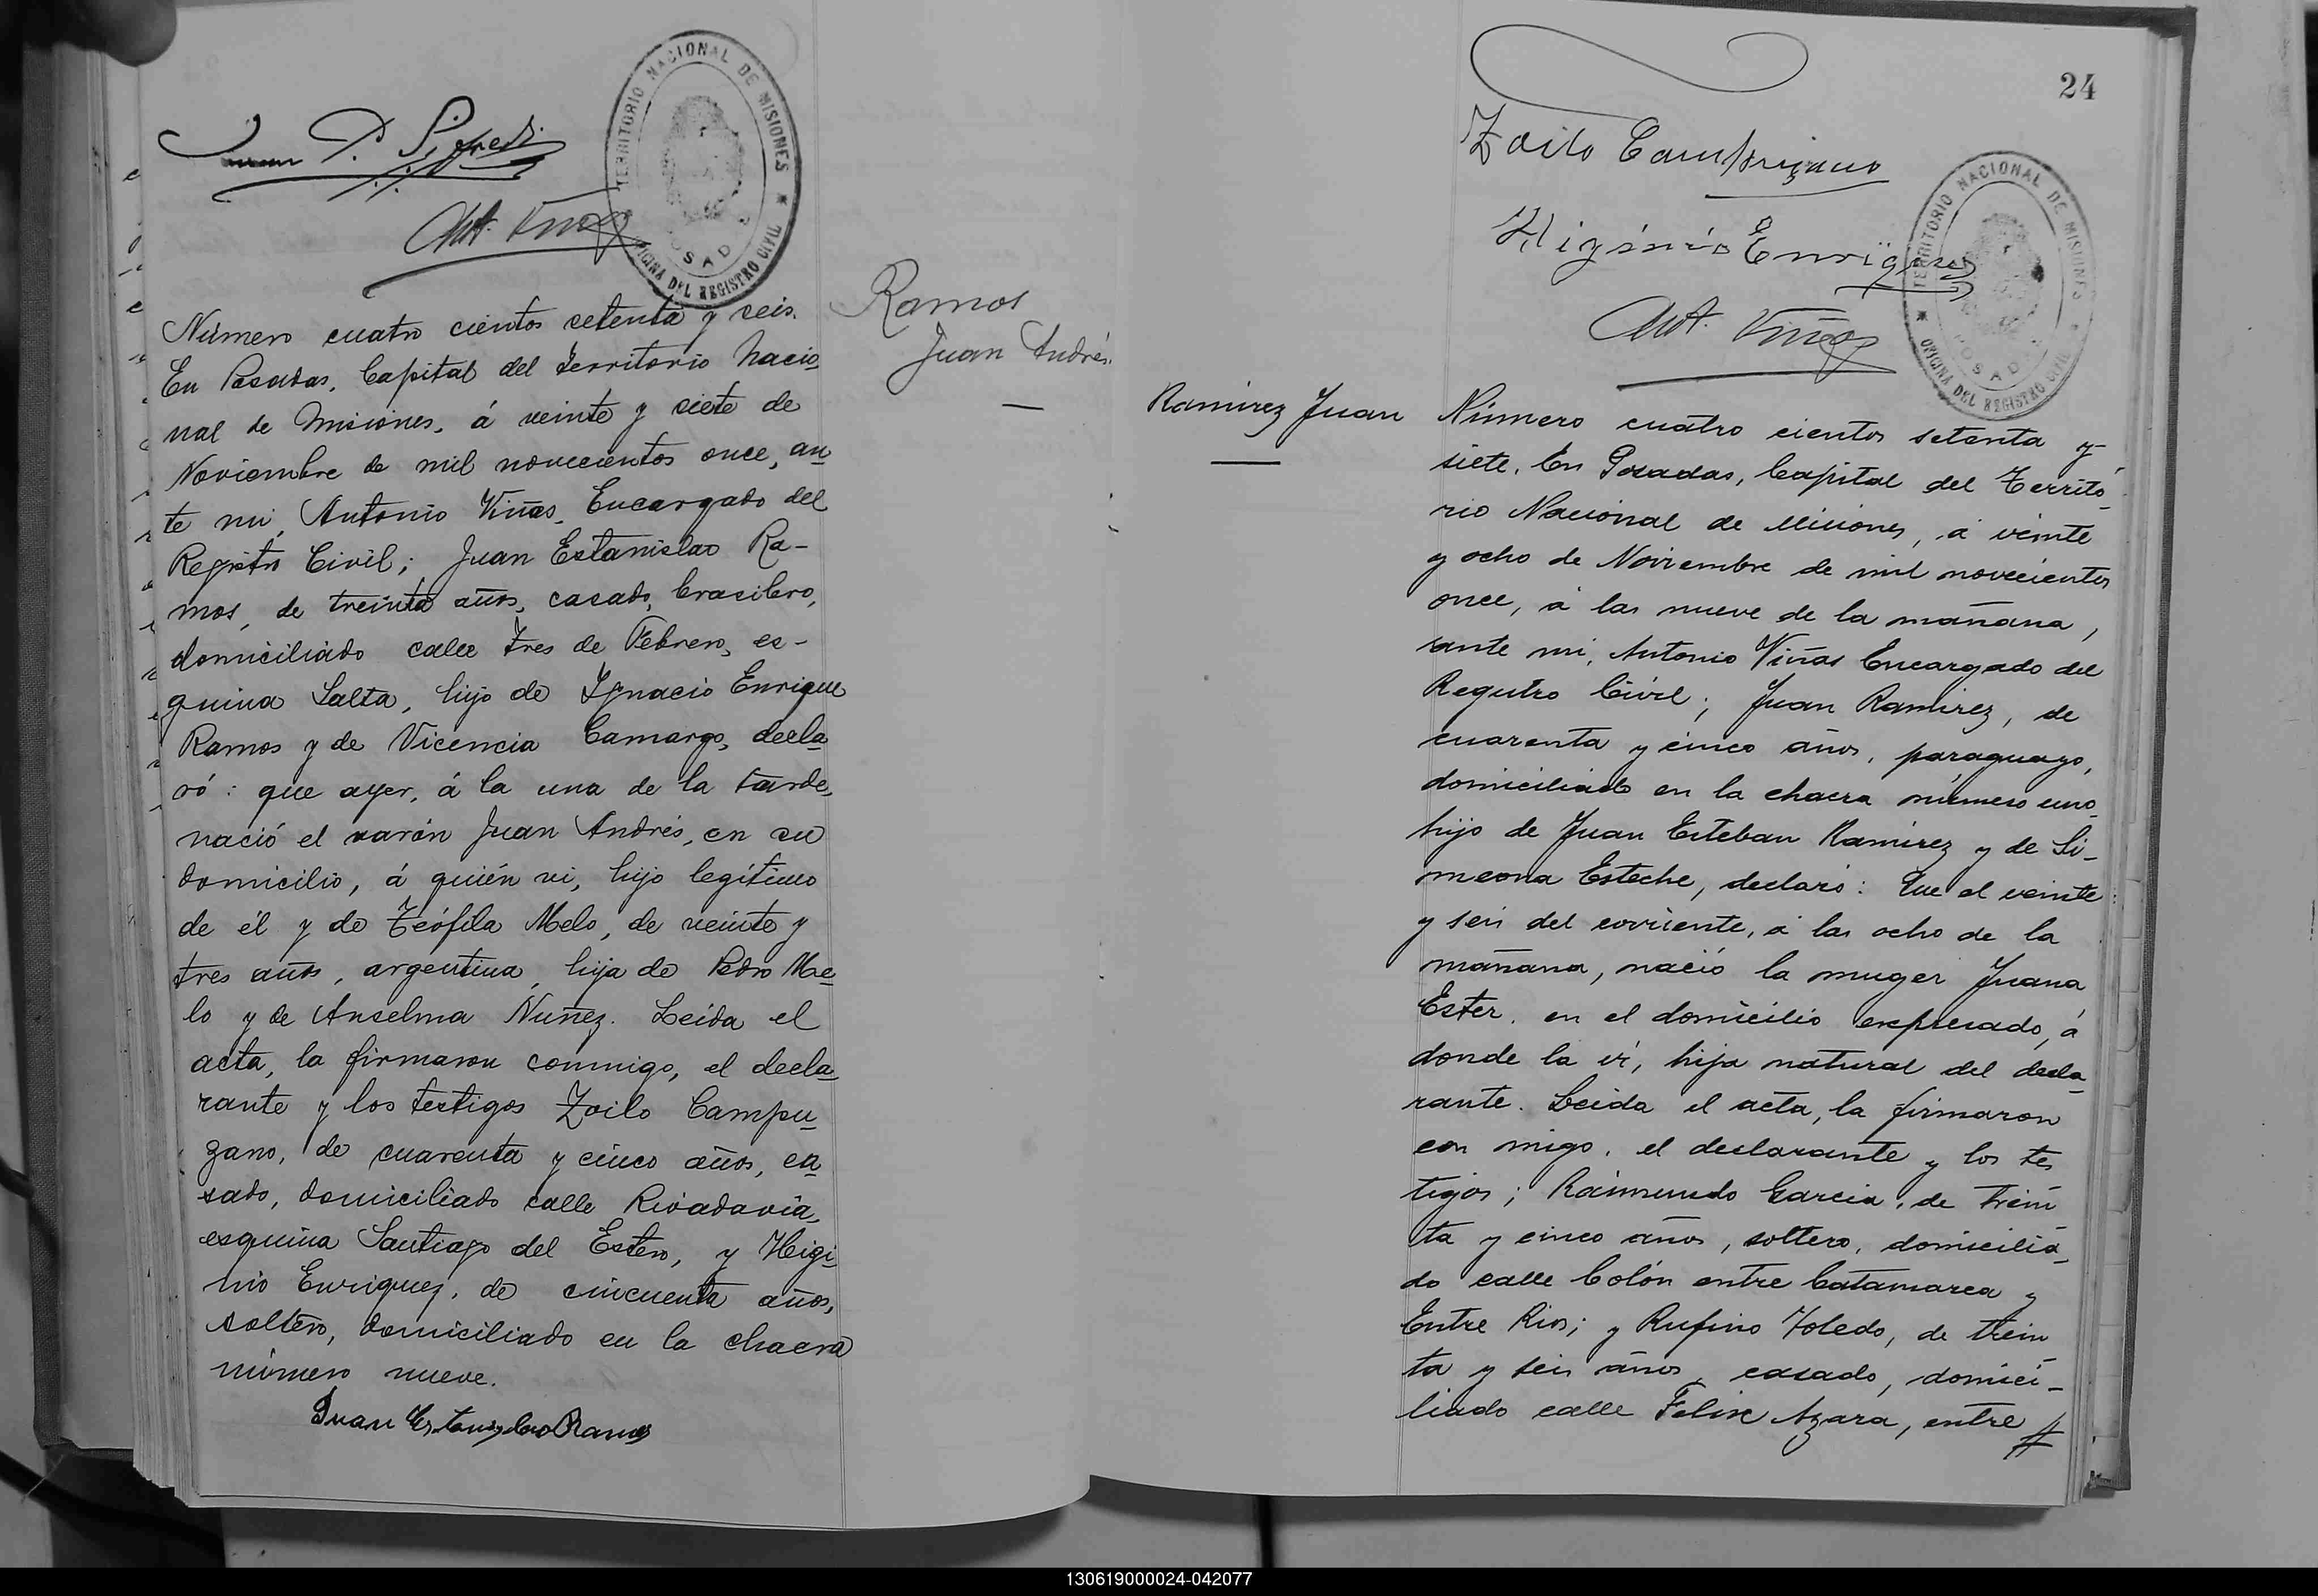 TERRITORIO NACIONAL DE MISIONES
OFICINA DEL REGISTRO CIVIL
POSADAS
Ant. Viñas
Número cuatro cientos setenta y seis.
En Posadas, Capital del Territorio Nacio
nal de Misiones, á veinte y siete de
Noviembre de mil novecientos once, an
te mi, Antonio Viñas, Encargado del
Registro Civil; Juan Estanislao Ra-
mos, de treinta años, casado, brasilero,
domiciliado calle Tres de Febrero, es-
quina Salta, hijo de Ignacio Enrique
Ramos y de Vicencia Camargo, decla
ró: que ayer, á la una de la tarde,
nació el varón Juan Andrés, en su
domicilio, á quién vi, hijo legítimo
de él y de Teófila Melo, de veinte y
tres años, argentina, hija de Pedro Me-
lo y de Anselma Nuñez. Leida el
acta, la firmaron conmigo, el decla
rante y los testigos Zoilo Campu
zano, de cuarenta y cinco años, ca
sado, domiciliado calle Rivadavia,
esquina Santiago del Estero, y Higi
nio Enriquez, de cincuenta años,
soltero, domiciliado en la chacra
número nueve.
Juan Estanislao Ramos
Ramos
Juan Andrés.
24
Zoilo Campuzano
Higinio Enriquez
Ant. Viñas
TERRITORIO NACIONAL DE MISIONES
OFICINA DEL REGISTRO CIVIL
POSADAS
Ramirez Juan
Número cuatro cientos setenta y
siete. En Posadas, Capital del Territó
rio Nacional de Misiones, á veinte
y ocho de Noviembre de mil novecientos
once, á las nueve de la mañana,
ante mi, Antonio Viñas Encargado del
Registro Civil; Juan Ramirez, de
cuarenta y cinco años, paraguayo,
domiciliado en la chacra número uno
hijo de Juan Esteban Ramirez y de Si-
meona Esteche, declaró: Que el veinte
y seis del corriente, á las ocho de la
mañana, nació la muger Juana
Ester, en el domicilio expresado, á
donde la ví, hija natural del decla
rante. Leida el acta, la firmaron
con migo, el declarante y los tes
tigos; Raimundo Garcia, de trein
ta y cinco años, soltero, domicilia
do calle Colón entre Catamarca y
Entre Rios; y Rufino Toledo, de trein
ta y seis años, casado, domici-
liado calle Felix Azara, entre #
130619000024-042077